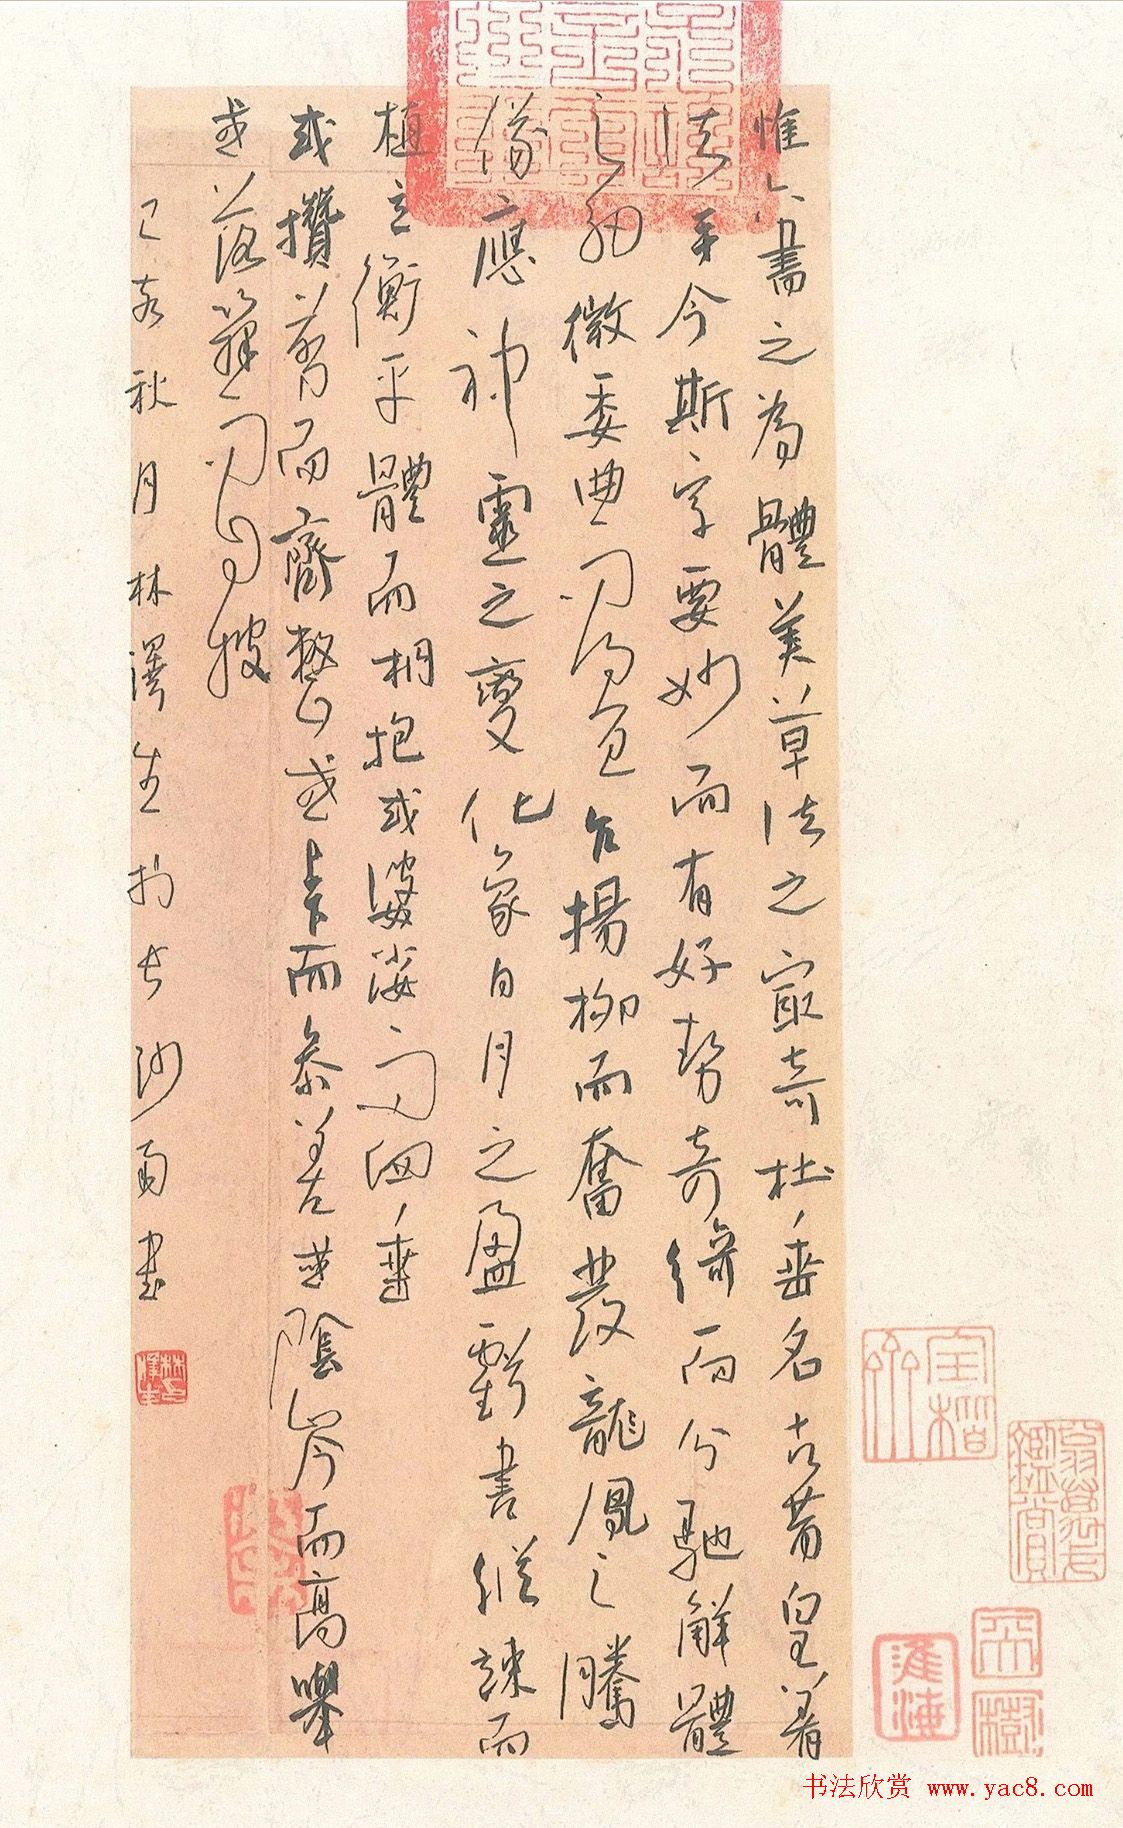 惟六書之為體美草法之寂奇杜垂名古昔皇著
法乎今斯字要妙而有好勢奇綺而分馳解體
之細微委曲而得宜乍揚柳而奮發龍鳳之騰
儀應神靈之變化象日月之盈虧書縱竦而
植立衡平體而相抱或婆娑而四垂
或攢剪而齊整或上下而參差或陰岑而高舉
或落籜而自披
己亥秋月林澤生於長沙南書
书法欣赏 www.yac8.com